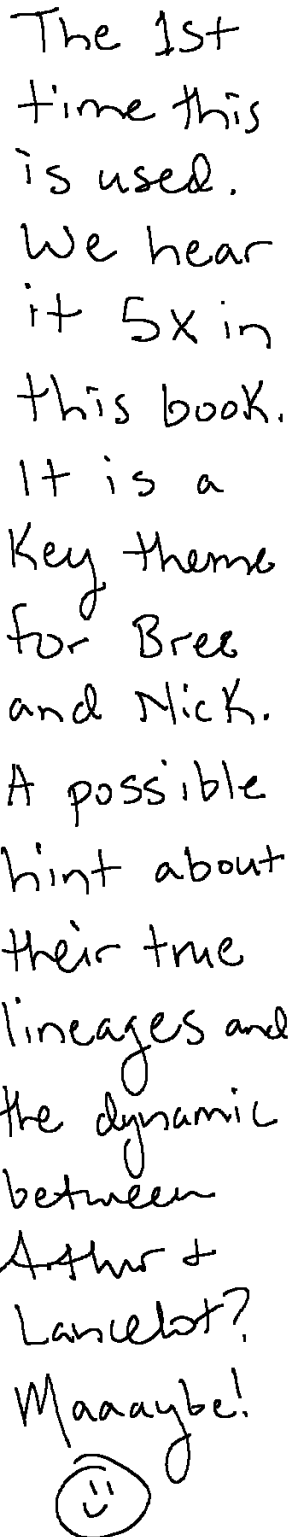 The 1st
time this
is used.
We hear
it 5x in
this book.
It is a
Key theme
for Bree
and Nick.
A possible
hint about
their true
lineages and
the dynamic
between
Arthur +
Lancelot?
Maaaybe!